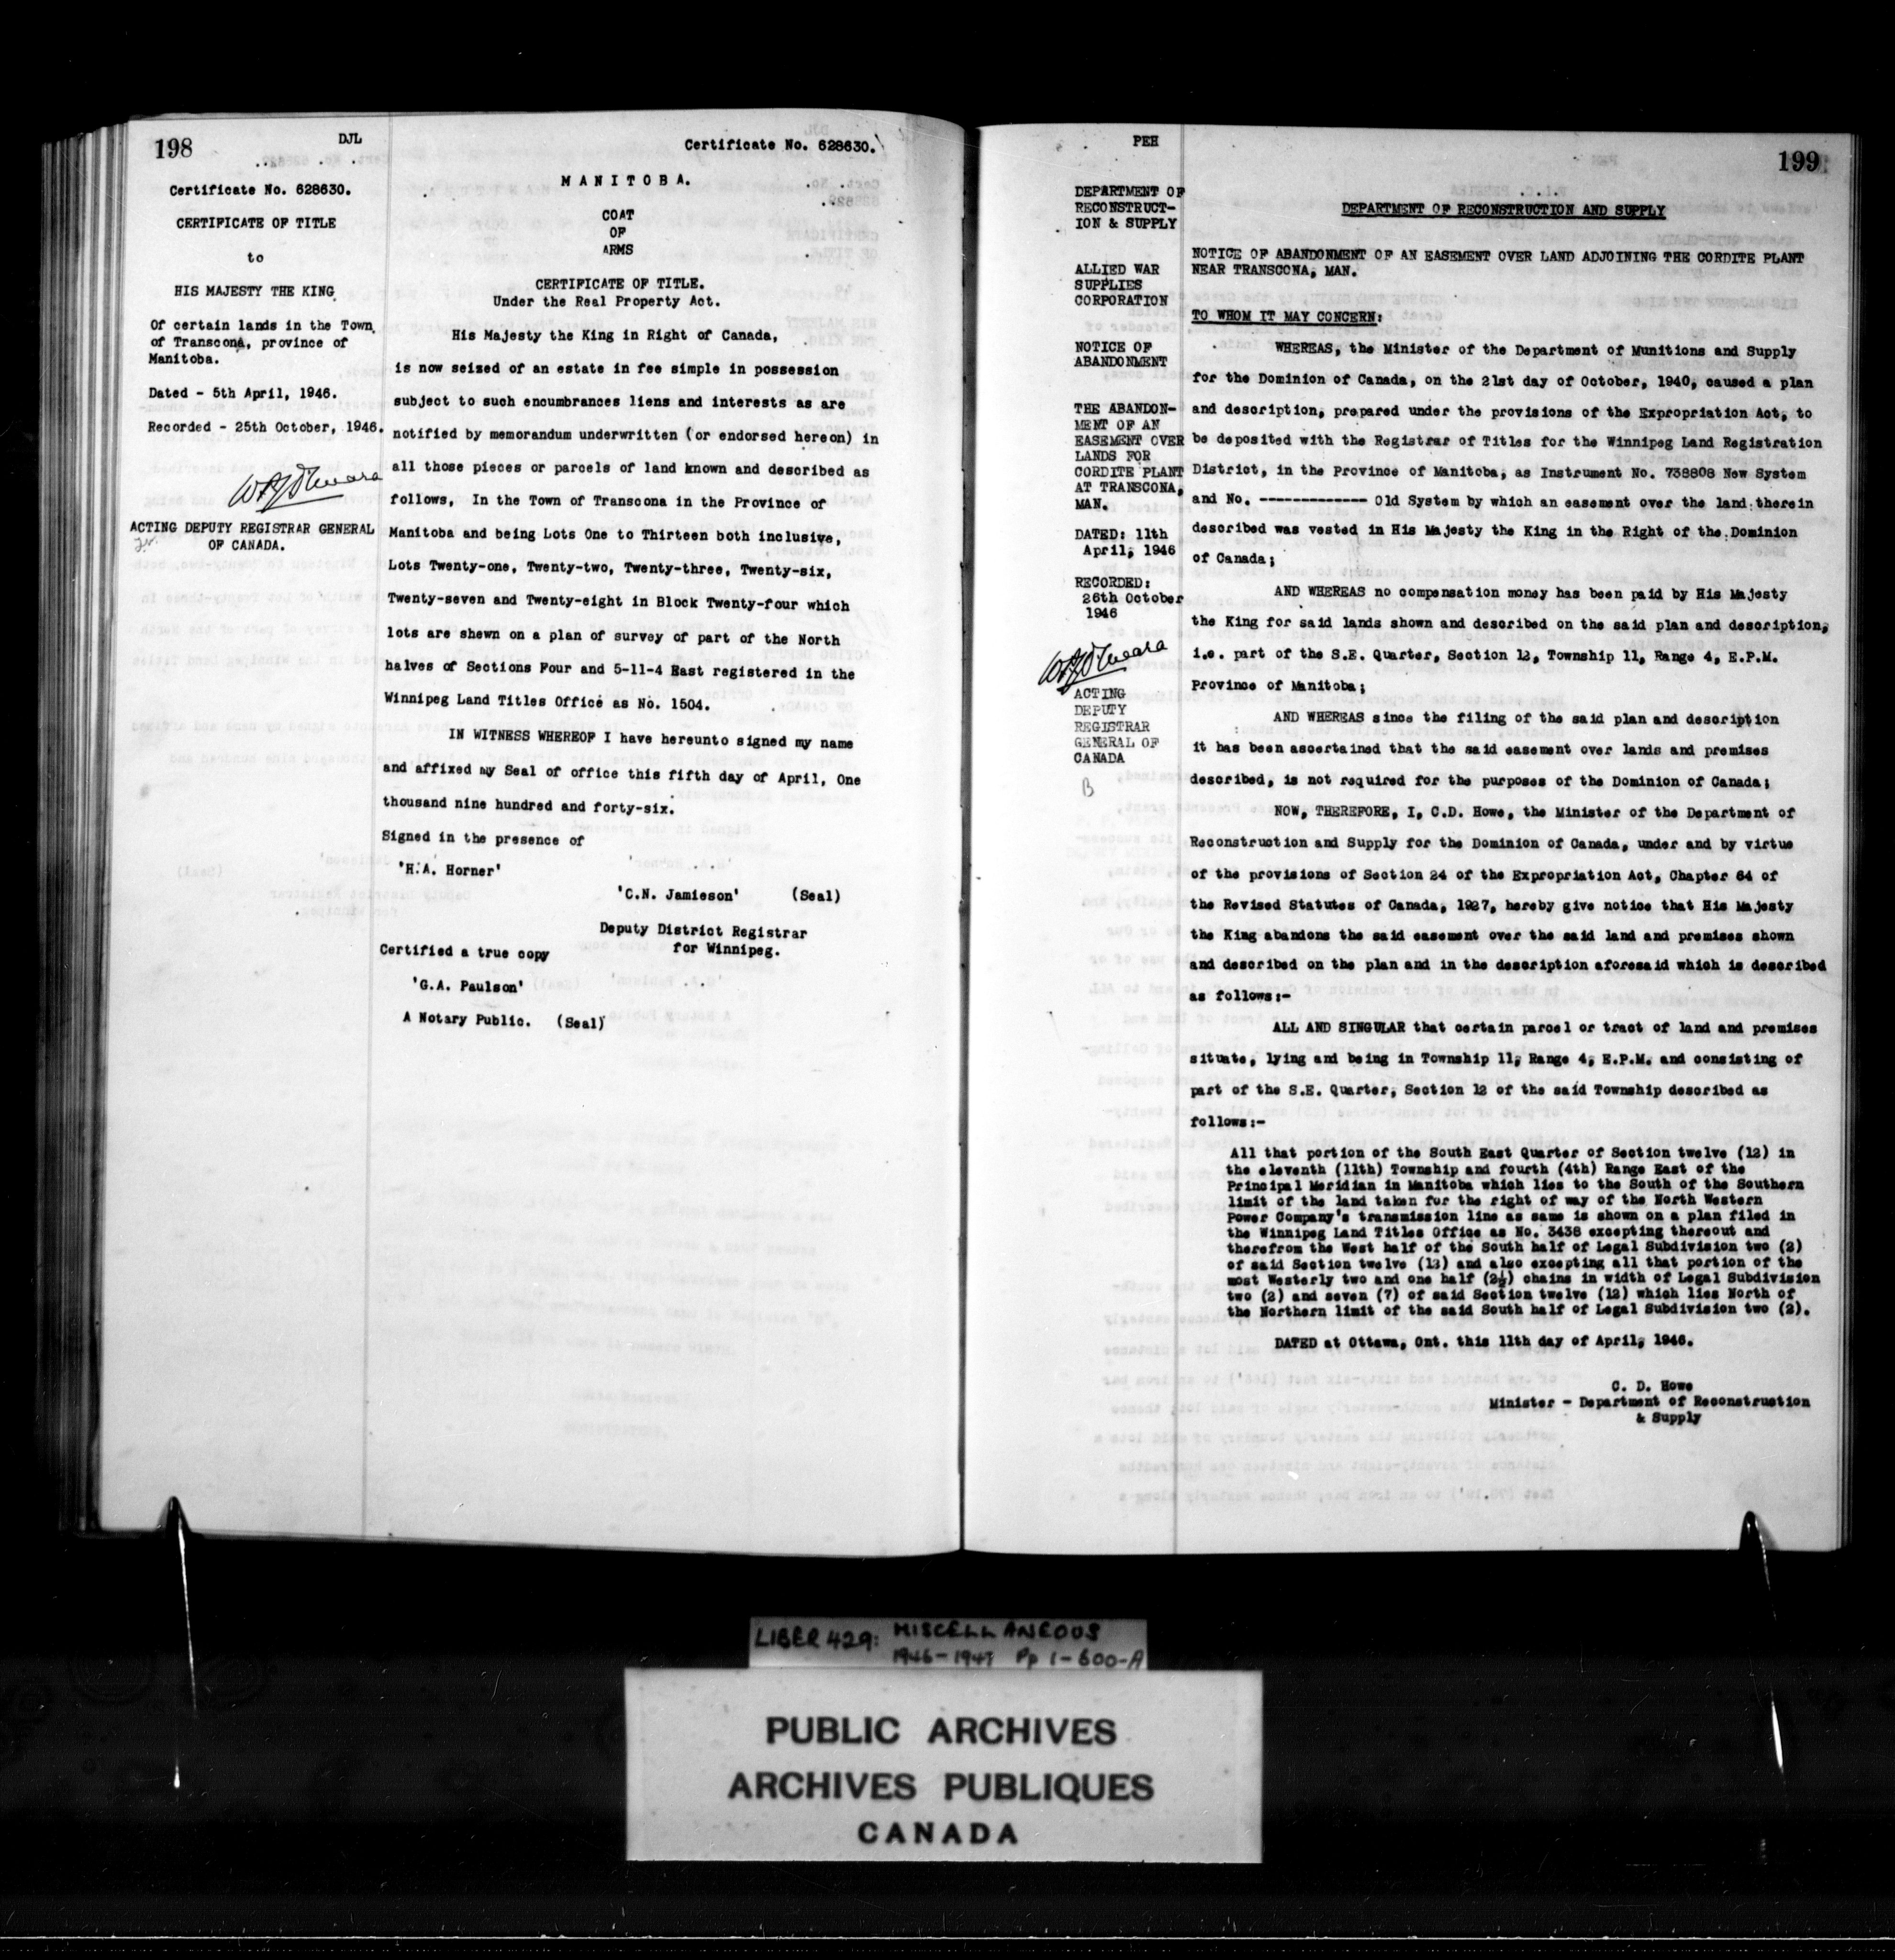 198
DJL
Certificate No. 628630.
CERTIFICATE OF TITLE
to
HIS MAJESTY THE KING
Of certain lands in the Town
of Transcona, province of
Manitoba.
Dated - 5th April, 1946.
Recorded - 25th October, 1946.
ACTING DEPUTY REGISTRAR GENERAL
OF CANADA.
Certificate No. 628630.
MANITOBA.
COAT
OF
ARMS
CERTIFICATE OF TITLE.
Under the Real Property Act.
His Majesty the King in Right of Canada,
is now seized of an estate in fee simple in possession
subject to such encumbrances liens and interests as are
notified by memorandum underwritten (or endorsed hereon) in
all those pieces or parcels of land known and described as
follows, In the Town of Transcona in the Province of
Manitoba and being Lots One to Thirteen both inclusive,
Lots Twenty-one, Twenty-two, Twenty-three, Twenty-six,
Twenty-seven and Twenty-eight in Block Twenty-four which
lots are shewn on a plan of survey of part of the North
halves of Sections Four and 5-11-4 East registered in the
Winnipeg Land Titles Office as No. 1504.
IN WITNESS WHEREOF I have hereunto signed my name
and affixed my Seal of office this fifth day of April, One
thousand nine hundred and forty-six.
Signed in the presence of
'H.A. Horner'
'C.N. Jamieson' (Seal)
Deputy District Registrar
for Winnipeg.
Certified a true copy
'G.A. Paulson'
A Notary Public. (Seal)
PEH
199
DEPARTMENT OF
RECONSTRUCT-
ION & SUPPLY
ALLIED WAR
SUPPLIES
CORPORATION
NOTICE OF
ABANDONMENT
THE ABANDON-
MENT OF AN
EASEMENT OVER
LANDS FOR
CORDITE PLANT
AT TRANSCONA,
MAN.
DATED: 11th
April, 1946
RECORDED:
26th October
1946
ACTING
DEPUTY
REGISTRAR
GENERAL OF
CANADA
B
DEPARTMENT OF RECONSTRUCTION AND SUPPLY
NOTICE OF ABANDONMENT OF AN EASEMENT OVER LAND ADJOINING THE CORDITE PLANT
NEAR TRANSCONA, MAN.
TO WHOM IT MAY CONCERN:
WHEREAS, the Minister of the Department of Munitions and Supply
for the Dominion of Canada, on the 21st day of October, 1940, caused a plan
and description, prepared under the provisions of the Expropriation Act, to
be deposited with the Registrar of Titles for the Winnipeg Land Registration
District, in the Province of Manitoba, as Instrument No. 738808 New System
and No. ------------- Old System by which an easement over the land therein
described was vested in His Majesty the King in the Right of the Dominion
of Canada;
AND WHEREAS no compensation money has been paid by His Majesty
the King for said lands shown and described on the said plan and description,
i.e. part of the S.E. Quarter, Section 12, Township 11, Range 4, E.P.M.
Province of Manitoba;
AND WHEREAS since the filing of the said plan and description
it has been ascertained that the said easement over lands and premises
described, is not required for the purposes of the Dominion of Canada;
NOW, THEREFORE, I, C.D. Howe, the Minister of the Department of
Reconstruction and Supply for the Dominion of Canada, under and by virtue
of the provisions of Section 24 of the Expropriation Act, Chapter 64 of
the Revised Statutes of Canada, 1927, hereby give notice that His Majesty
the King abandons the said easement over the said land and premises shown
and described on the plan and in the description aforesaid which is described
as follows:-
ALL AND SINGULAR that certain parcel or tract of land and premises
situate, lying and being in Township 11, Range 4, E.P.M. and consisting of
part of the S.E. Quarter, Section 12 of the said Township described as
follows:-
All that portion of the South East Quarter of Section twelve (12) in
the eleventh (11th) Township and fourth (4th) Range East of the
Principal Meridian in Manitoba which lies to the South of the Southern
limit of the land taken for the right of way of the North Western
Power Company's transmission line as same is shown on a plan filed in
the Winnipeg Land Titles Office as No. 3438 excepting thereout and
therefrom the West half of the South half of Legal Subdivision two (2)
of said Section twelve (12) and also excepting all that portion of the
most Westerly two and one half (2½) chains in width of Legal Subdivision
two (2) and seven (7) of said Section twelve (12) which lies North of
the Northern limit of the said South half of Legal Subdivision two (2).
DATED at Ottawa, Ont. this 11th day of April, 1946.
C. D. Howe
Minister - Department of Reconstruction
& Supply
LIBER 429: MISCELLANEOUS
1946-1947 Pp 1-600-A
PUBLIC ARCHIVES
ARCHIVES PUBLIQUES
CANADA